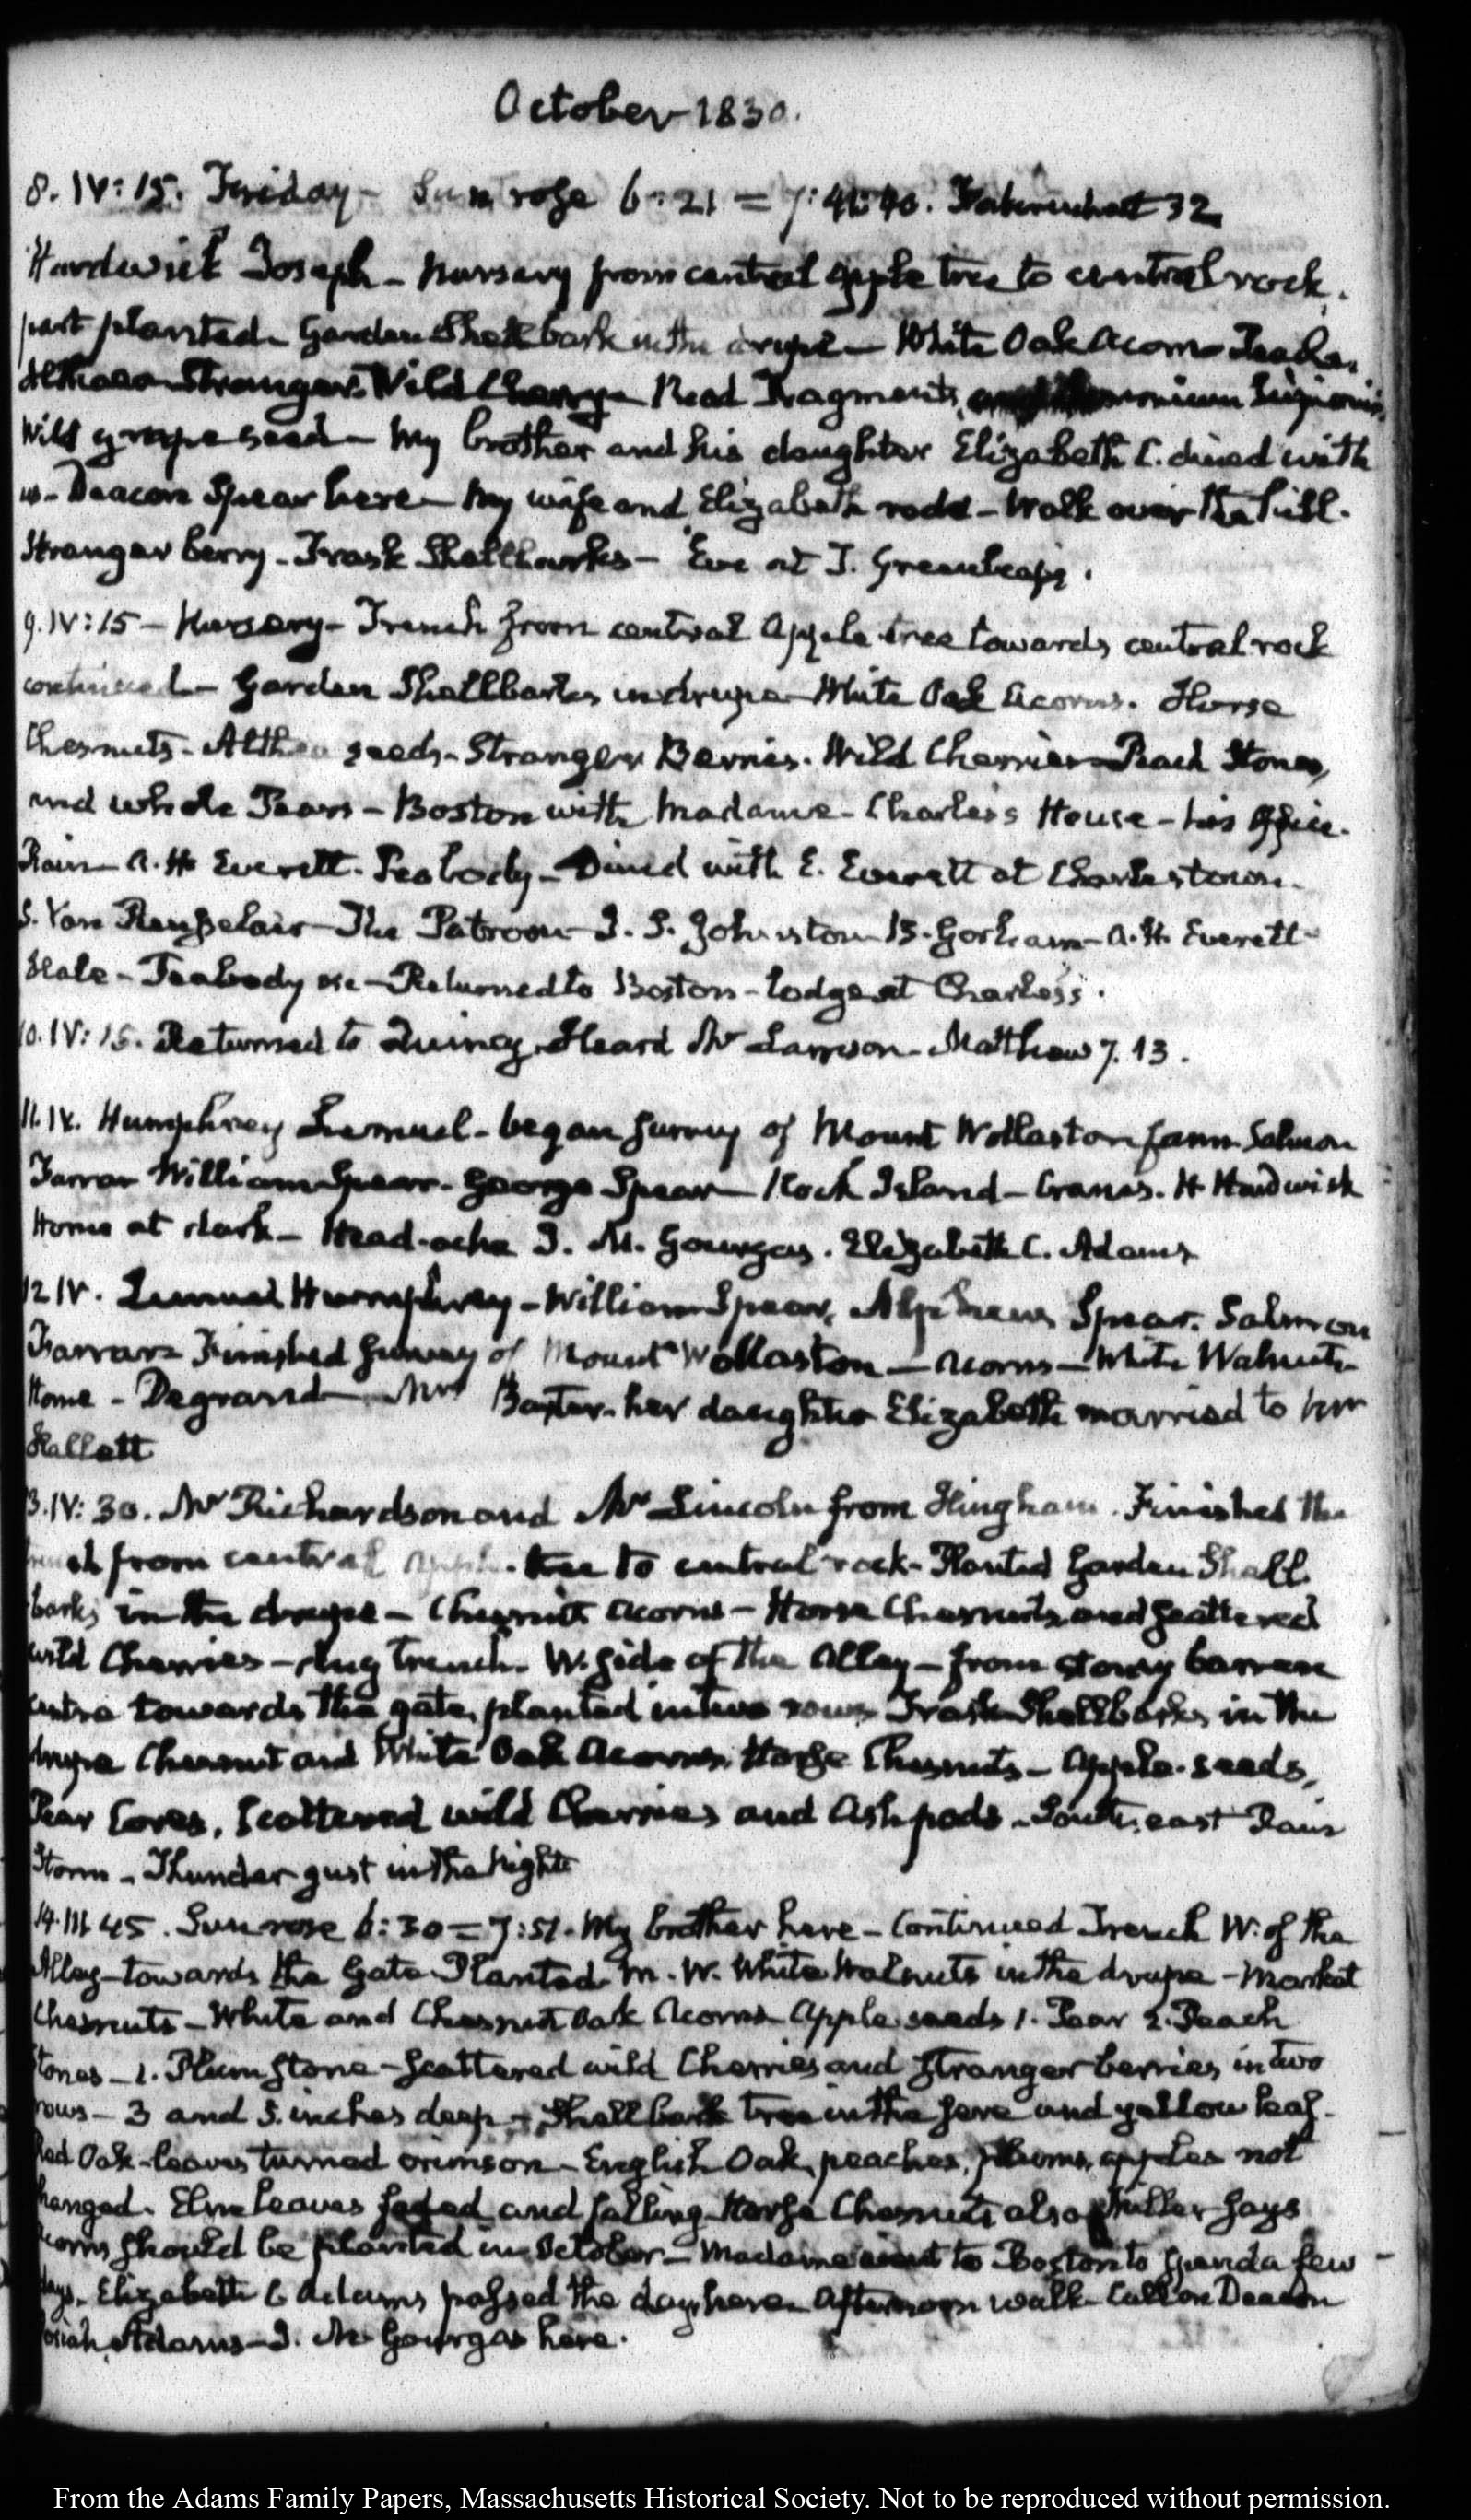 October 1830.
8. IV: 15. Friday - Sun rose 6:21 = 7: Fahrenheit 32
Hardwick Joseph - Nursery from central apple tree to central rock.
part planted - Garden Shellbark in the drupe - White Oak Acorns
Althaea Stranger. Wild Cherry - Read Fragments
Wild grape seed - My brother and his daughter Elizabeth C. dined with
us - Deacon Spear here - My wife and Elizabeth rode - Walk over the hill.
Stranger berry - Trask Shellbarks - Eve at T. Greenleaf's.
9. IV: 15 - Nursery - Trench from central Apple tree towards central rock
continued - Garden Shellbarks in drupe - White Oak Acorns. Horse
Chesnuts - Althea seeds - Stranger Berries. Wild Cherries - Peach Stones,
and whole Pears - Boston with Madame - Charles's House - his Office.
Rain - A. H. Everett. Peabody - Dined with E. Everett at Charlestown.
S. Van Renselair - The Patroon - J. S. Johnston - B. Gorham - A. H. Everett -
Hale - Peabody &c - Returned to Boston - lodge at Charles's.
10. IV: 15. Returned to Quincy. Heard Mr Lamson - Matthew 7. 13.
11. IV. Humphrey Lemuel - began survey of Mount Wollaston farm Salmon
Farrar William Spear - George Spear - Rock Island - Cranes. H. Hardwick
Home at dark - Head-ache J. M. Gourgas. Elizabeth C. Adams
12 IV. Lemuel Humphrey - William Spear, Alpheus Spear. Salmon
Farrar - Finished Survey of Mount Wollaston - Acorns - White Walnuts
Home - Degrand - Mrs Baxter - her daughter Elizabeth married to
Hallett
13. IV: 30. Mr Richardson and Mr Lincoln from Hingham. Finished the
trench from central apple tree to central rock - Planted Garden Shell
barks in the drupe - Chesnut Acorns - Horse Chesnuts and scattered
wild Cherries - dug trench. W. side of the Alley - from stony barren
centre towards the gate, planted in two rows Trask Shellbarks in the
drupe Chesnut and White Oak Acorns. Horse Chesnuts - Apple-seeds,
Pear Cores, scattered wild Cherries and Ash pods - South-east Rain
Storm - Thunder gust in the Night
14. III. 45. Sun rose 6:30 = 7:51. My brother here - Continued Trench W. of the
Alley - towards the Gate Planted M. W. White Walnuts in the drupe - Market
Chesnuts - White and Chesnut Oak Acorns Apple seeds 1. Pear 2. Peach
stones - 1. Plum stone - scattered wild Cherries and stranger berries in two
rows - 3 and 5 inches deep - Shellbark tree in the sere and yellow leaf.
Red Oak - leaves turned crimson - English Oak, peaches, plums, apples not
changed. Elm leaves faded and falling Horse Chesnuts also Miller says
acorns should be planted in October - Madame went to Boston to spend a few
days. Elizabeth C Adams passed the day here Afternoon walk - Call on Deacon
Josiah Adams - J. M. Gourgas here.
From the Adams Family Papers, Massachusetts Historical Society. Not to be reproduced without permission.